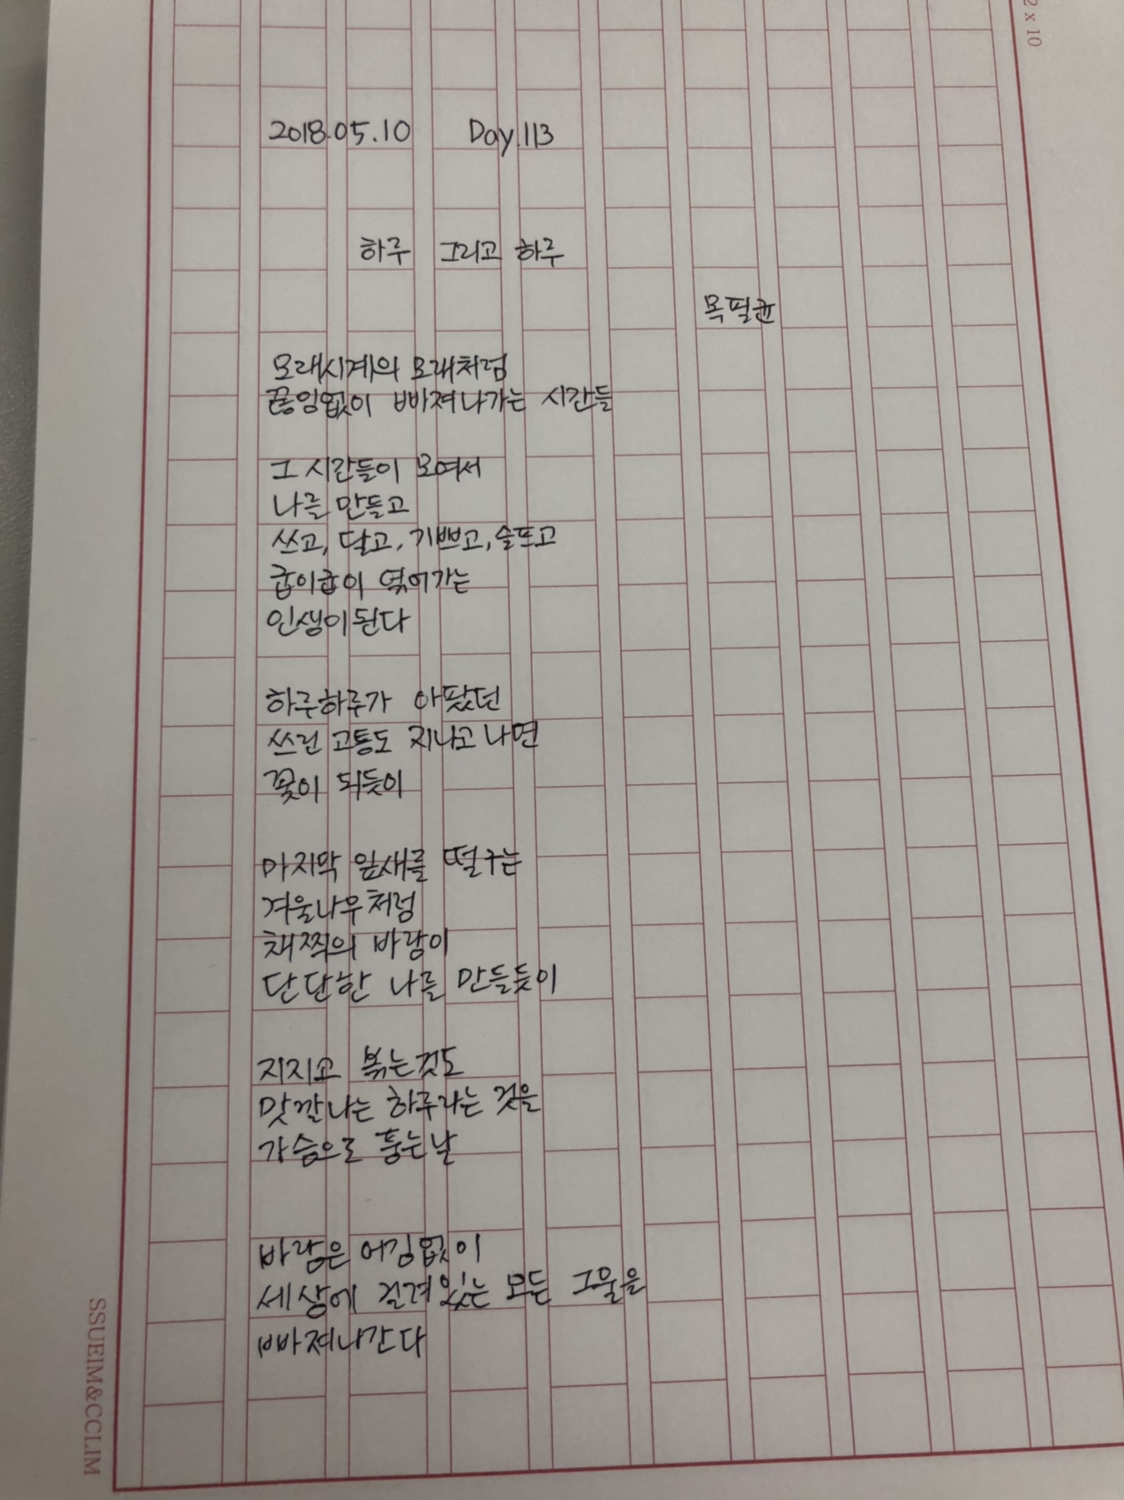 2 x 10
2018.05.10 Day.113
하루 그리고 하루
목필균
모래시계의 모래처럼
끊임없이 빠져나가는 시간들
그 시간들이 모여서
나를 만들고
쓰고, 달고, 기쁘고, 슬프고
굽이굽이 엮어가는
인생이 된다
하루하루가 아팠던
쓰린 고통도 지나고 나면
꽃이 되듯이
마지막 잎새를 떨구는
겨울나무처럼
채찍의 바람이
단단한 나를 만들듯이
지지고 볶는것도
맛깔나는 하루라는 것을
가슴으로 품는날
바람은 어김없이
세상에 걸려있는 모든 그물을
빠져나간다
SSUEIM&CCLIM